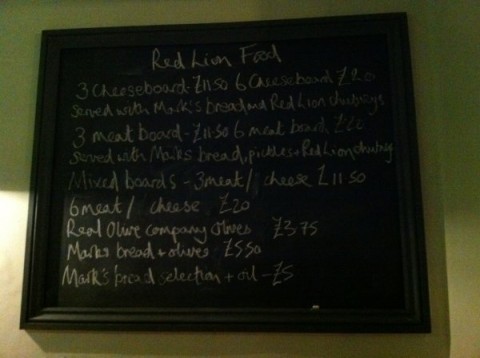 Red Lion Food
3 Cheeseboard - £11.50 6 Cheeseboard £20
served with Mark's bread and Red Lion chutneys
3 meat board - £11.50 6 meat board £20
served with Marks bread, pickles + Red Lion chutney
Mixed boards - 3 meat / cheese £11.50
6 meat / cheese £20
Real Olive company olives £3.75
Marks bread + olives £5.50
Mark's bread selection + oil - £5